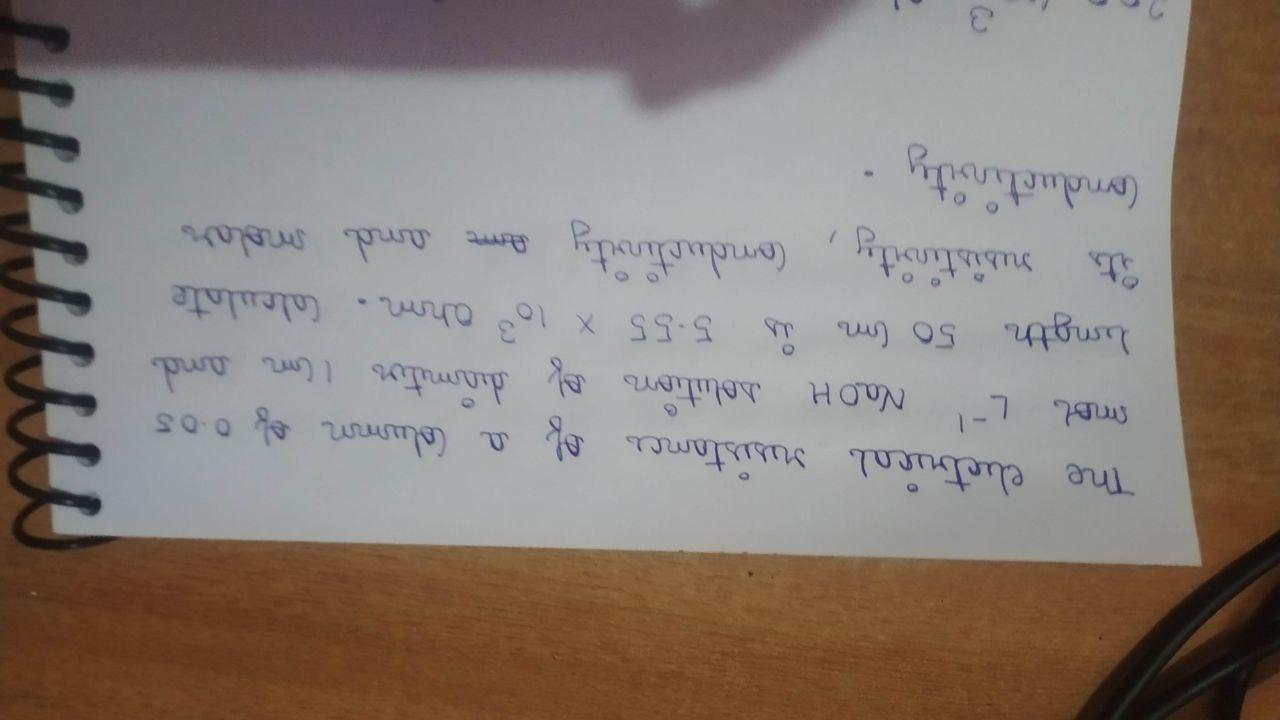 The electrical resistance of a column of 0.05
mol L⁻¹ NaOH solution of diameter 1 cm and
length 50 cm is 5.55 × 10³ ohm. Calculate
its resistivity, conductivity and molar
conductivity.
3